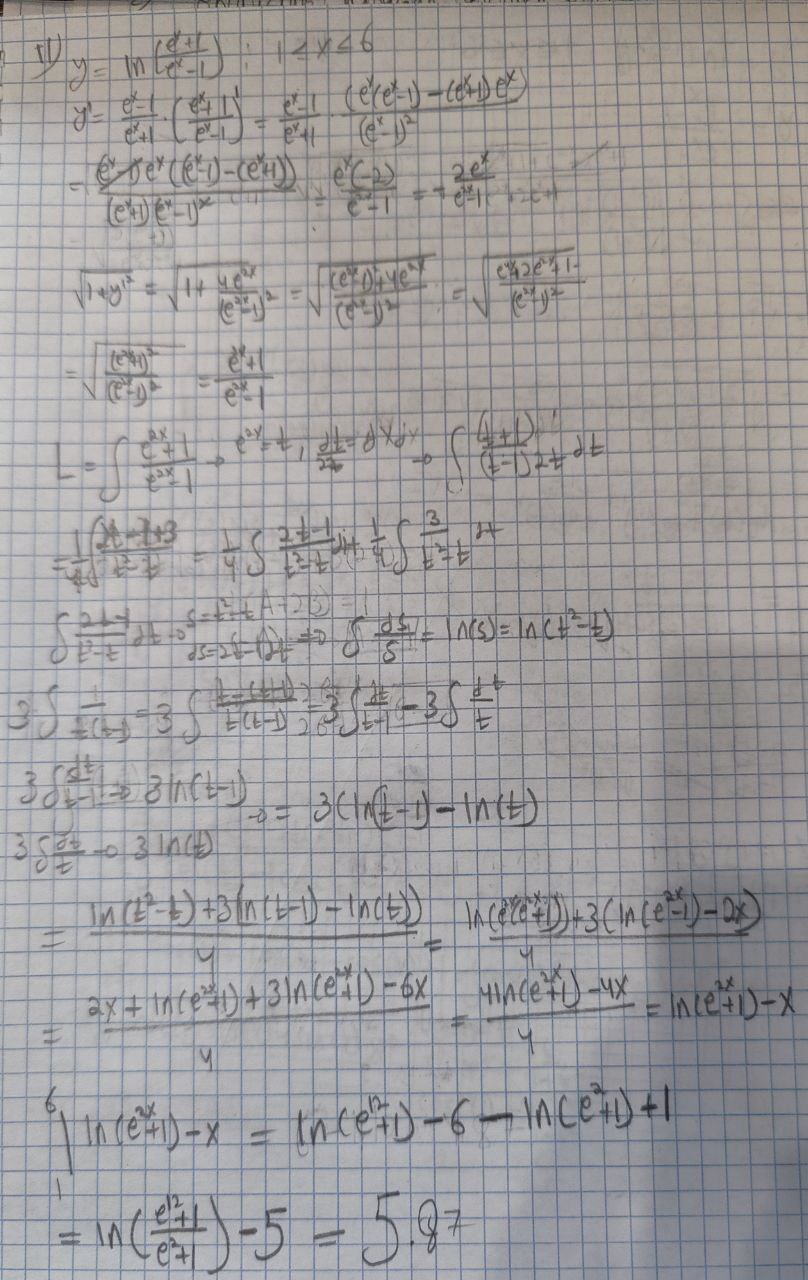 11) y = ln((e^x+1)/(e^x-1)) ; 1 < x < 6
y' = (e^x-1)/(e^x+1) · ((e^x+1)/(e^x-1))' = (e^x-1)/(e^x+1) · (e^x(e^x-1)-(e^x+1)e^x)/(e^x-1)^2
= (e^x-1)e^x((e^x-1)-(e^x+1))/((e^x+1)(e^x-1)^2) = e^x(-2)/(e^2x-1) = -2e^x/(e^2x-1)
√(1+y'^2) = √(1+4e^2x/(e^2x-1)^2) = √(((e^2x-1)^2+4e^2x)/(e^2x-1)^2) = √((e^4x+2e^2x+1)/(e^2x-1)^2)
= √((e^2x+1)^2/(e^2x-1)^2) = (e^2x+1)/(e^2x-1)
L = ∫ (e^2x+1)/(e^2x-1) → e^2x = t, dt/2t = dx → ∫ (t+1)/((t-1)2t) dt
= 1/4 ∫ (2t-1+3)/(t^2-t) = 1/4 ∫ (2t-1)/(t^2-t) dt + 1/4 ∫ 3/(t^2-t) dt
∫ (2t-1)/(t^2-t) dt → s=t^2-t ds=2t-1dt → ∫ ds/s = ln(s) = ln(t^2-t)
3∫ 1/(t(t-1)) = 3∫ (t-(t-1))/(t(t-1)) = 3∫ dt/(t-1) - 3∫ dt/t
3∫ dt/(t-1) → 3ln(t-1) → = 3(ln(t-1)-ln(t))
3∫ dt/t → 3ln(t)
= (ln(t^2-t)+3(ln(t-1)-ln(t)))/4 = (ln(e^2x(e^2x+1))+3(ln(e^2x-1)-2x))/4
= (2x+ln(e^2x+1)+3ln(e^2x+1)-6x)/4 = (4ln(e^2x+1)-4x)/4 = ln(e^2x+1)-x
6|1 ln(e^2x+1)-x = ln(e^12+1)-6-ln(e^2+1)+1
= ln((e^12+1)/(e^2+1))-5 = 5.87